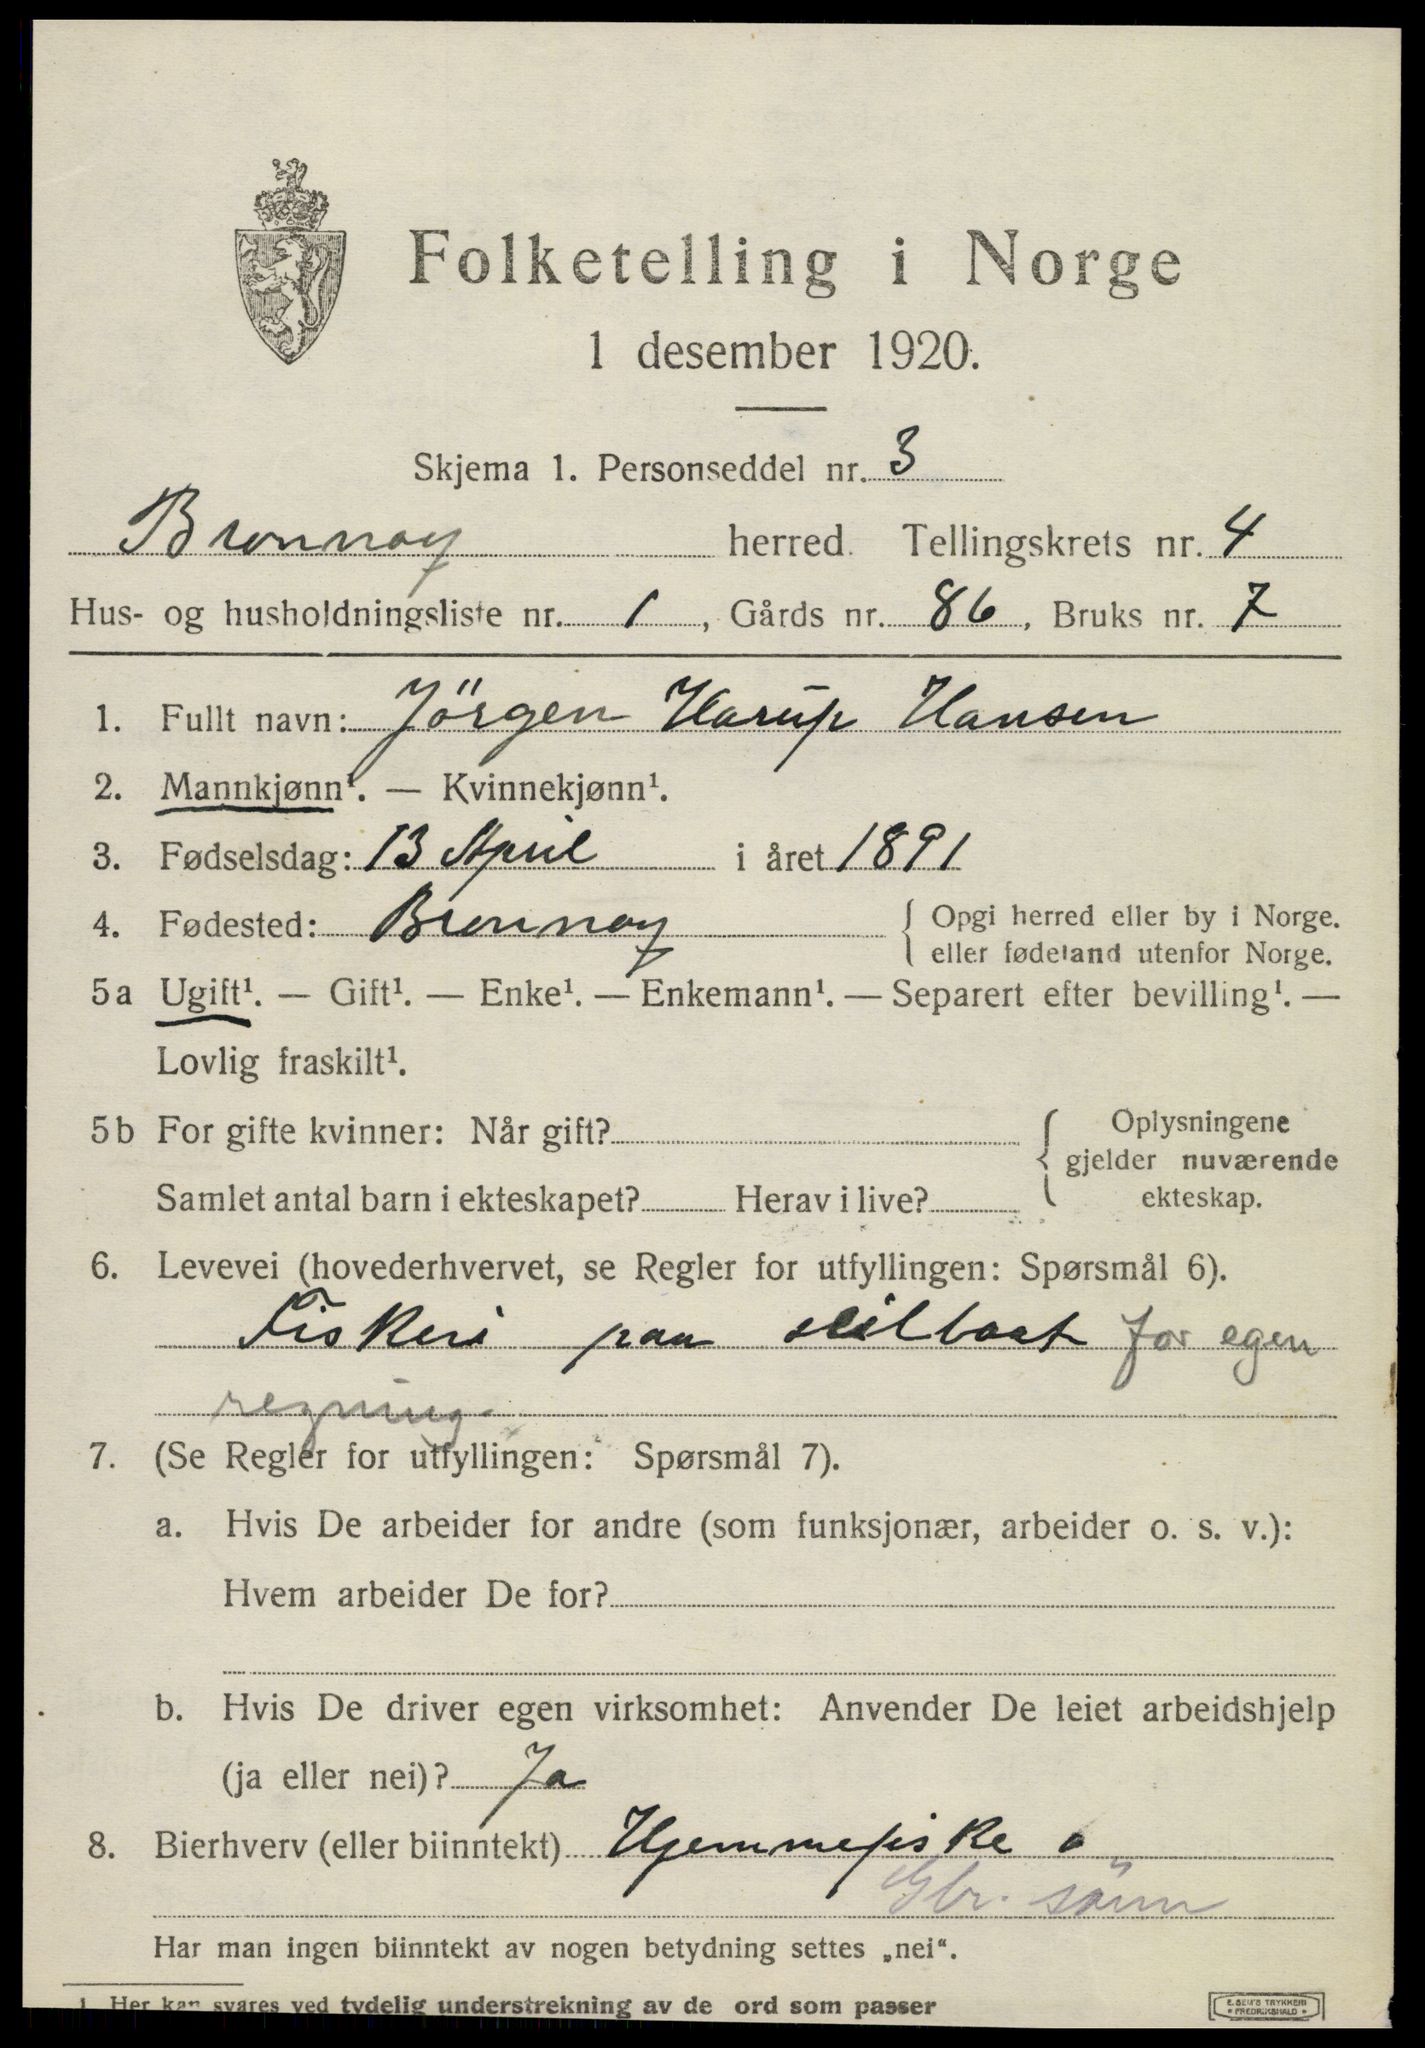 Folketelling i Norge
1 desember 1920.
Skjema 1. Personseddel nr. 3
Bronnoy herred. Tellingskrets nr. 4
Hus- og husholdningsliste nr. 1, Gårds nr. 86, Bruks nr. 7
1. Fullt navn: Jörgen Harup Hansen
2. Mannkjønn¹. — Kvinnekjønn¹.
3. Fødselsdag: 13 April i året 1891
4. Fødested: Bronnoy { Opgi herred eller by i Norge.
eller fødeland utenfor Norge.
5a Ugift¹. — Gift¹. — Enke¹. — Enkemann¹. — Separert efter bevilling¹. —
Lovlig fraskilt¹.
5b For gifte kvinner: Når gift?
Samlet antal barn i ekteskapet? Herav i live?
{ Oplysningene
gjelder nuværende
ekteskap.
6. Levevei (hovederhvervet, se Regler for utfyllingen: Spørsmål 6).
Fiskeri paa seilbaat for egen
regning.
7. (Se Regler for utfyllingen: Spørsmål 7).
a. Hvis De arbeider for andre (som funksjonær, arbeider o. s. v.):
Hvem arbeider De for?
b. Hvis De driver egen virksomhet: Anvender De leiet arbeidshjelp
(ja eller nei)? Ja
8. Bierhverv (eller biinntekt) Hjemmefiske o
Gbr. sönn
Har man ingen biinntekt av nogen betydning settes „nei“.
1. Her kan svares ved tydelig understrekning av de ord som passer
E. SEM'S TRYKKERI
• FREDRIKSHALD •